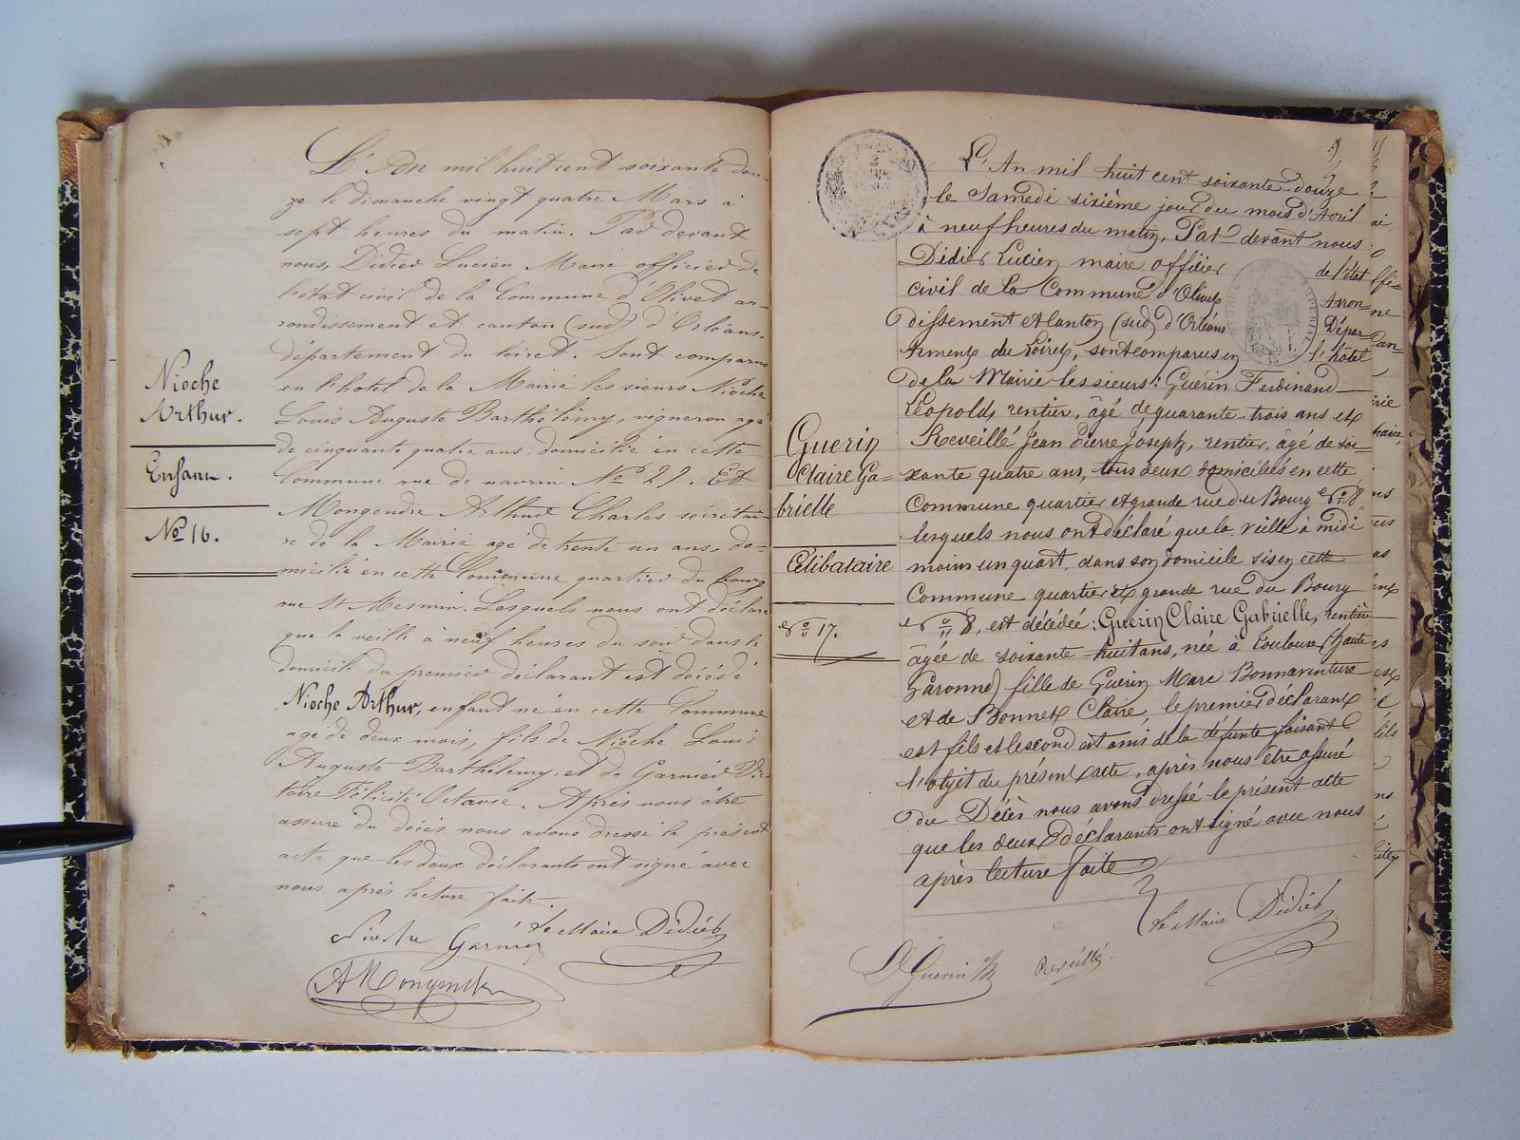 L'An mil huit cent soixante dou-
ze le dimanche vingt quatre Mars à
sept heures du matin. Par devant
nous, Didier Lucien Maire officier de
l'état civil de la Commune d'Olivet ar-
rondissement et canton (sud) d'Orléans.
département du Loiret. Sont comparus
en l'hotel de la Mairie les sieurs Nioche
Louis Auguste Barthélemy, vigneron agé
de cinquante quatre ans domicilié en cette
Commune rue de No 27. Et
Mongendre Arthur Charles secrétai-
re de la Mairie agé de trente un ans, do-
micilié en cette Commune quartier du bourg
rue St Mesmin. Lesquels nous ont déclaré
que la veille à neuf heures du soir dans le
domicile du premier déclarant est décédé
Nioche Arthur, enfant né en cette Commune
age de deux mois, fils de Nioche Louis
Auguste Barthélemy et de Garnier Vic-
toire Félicité Octavie. Après nous être
assuré du décès nous avons dressé le présent
acte que les deux déclarants ont signé avec
nous après lecture faite.
Nioche
Arthur.
Enfant.
No 16.
Nioche Garnier
Le Maire Didier
AMongendre
9
L'An mil huit cent soixante-douze
le Samedi sixième jour du mois d'Avril
à neuf heures du matin, Par devant nous
Didier Lucien maire officier de l'état
civil de la Commune d'Olivet Arron=
dissement et Canton (sud) d'Orléans Dépar-
tement du Loiret, sont comparus en l'hôtel
de la Mairie les sieurs: Guérin Ferdinand
Léopold, rentier, âgé de quarante-trois ans et
Reveillé Jean Pierre Joseph, rentier, âgé de soi-
xante quatre ans, tous deux domiciliés en cette
Commune quartier et grande rue du Bourg No 8
lesquels nous ont déclaré que la veille à midi
moins un quart, dans son domicile sis en cette
Commune quartier et grande rue du Bourg
No 8, est décédée: Guerin Claire Gabrielle, rentière
âgée de soixante-huit ans, née à Toulouse (haute
Garonne) fille de Guérin Marc Bonnaventure
et de Bonnet Claire, le premier déclarant
est fils et le second est amis de la défunte faisant
l'objet du présent acte, après nous être assuré
du Décès nous avons dressé le présent acte
que les deux déclarants ont signé avec nous
après lecture faite
Guerin
Claire Ga=
brielle
Célibataire
No 17.
Le Maire Didier
Guerin
Reveillé